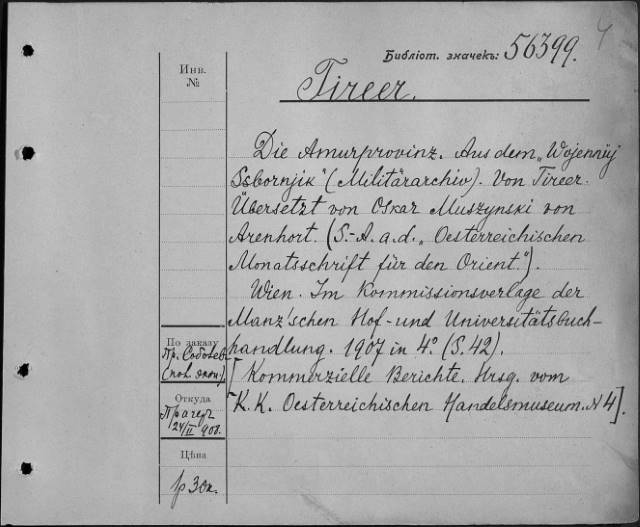 Библіот. значекъ: 56399.
Инв.
№
Tireer.
Die Amurprovinz. Aus dem „Wojennÿj
Ssbornjik" (Militärarchiv). Von Tireer.
Übersetzt von Oskar Muszynski von
Arenhort. (S.-A. a. d. „Oesterreichischen
Monatsschrift für den Orient.").
Wien. Im Kommissionsverlage der
Manz'schen Hof- und Universitätsbuch-
handlung. 1907 in 4º. (S. 42).
[Kommerzielle Berichte. Hrsg. vom
K. K. Oesterreichischen Handelsmuseum. N 4].
По заказу
Пр.
Откуда
24/II 908.
Цѣна